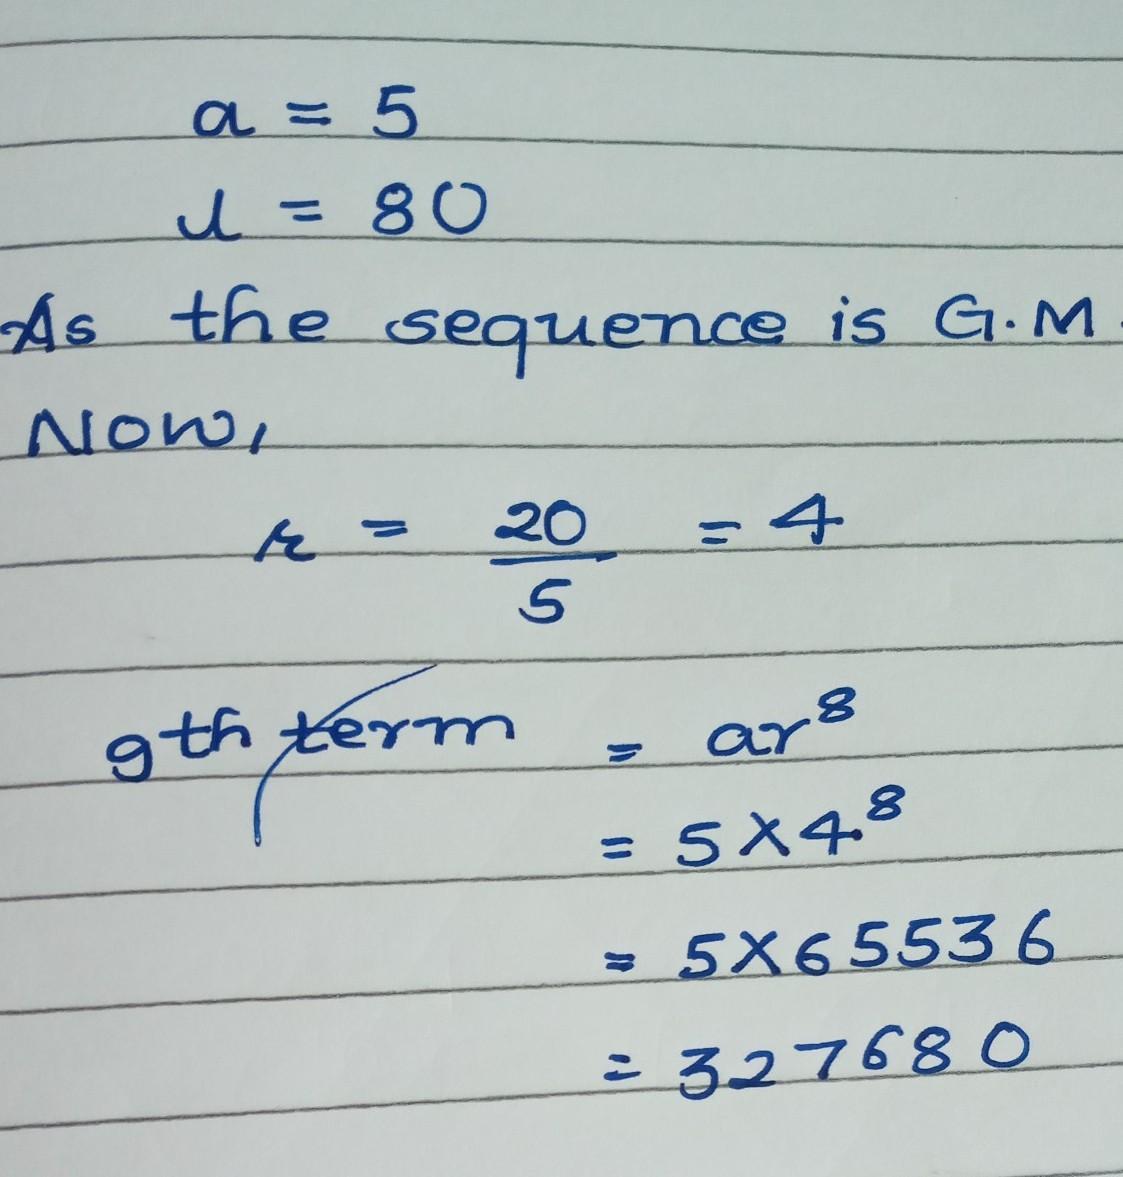 a = 5
l = 80
As the sequence is G.M.
Now,
r = 20/5 = 4
9th term = ar⁸
= 5×4⁸
= 5×65536
= 327680